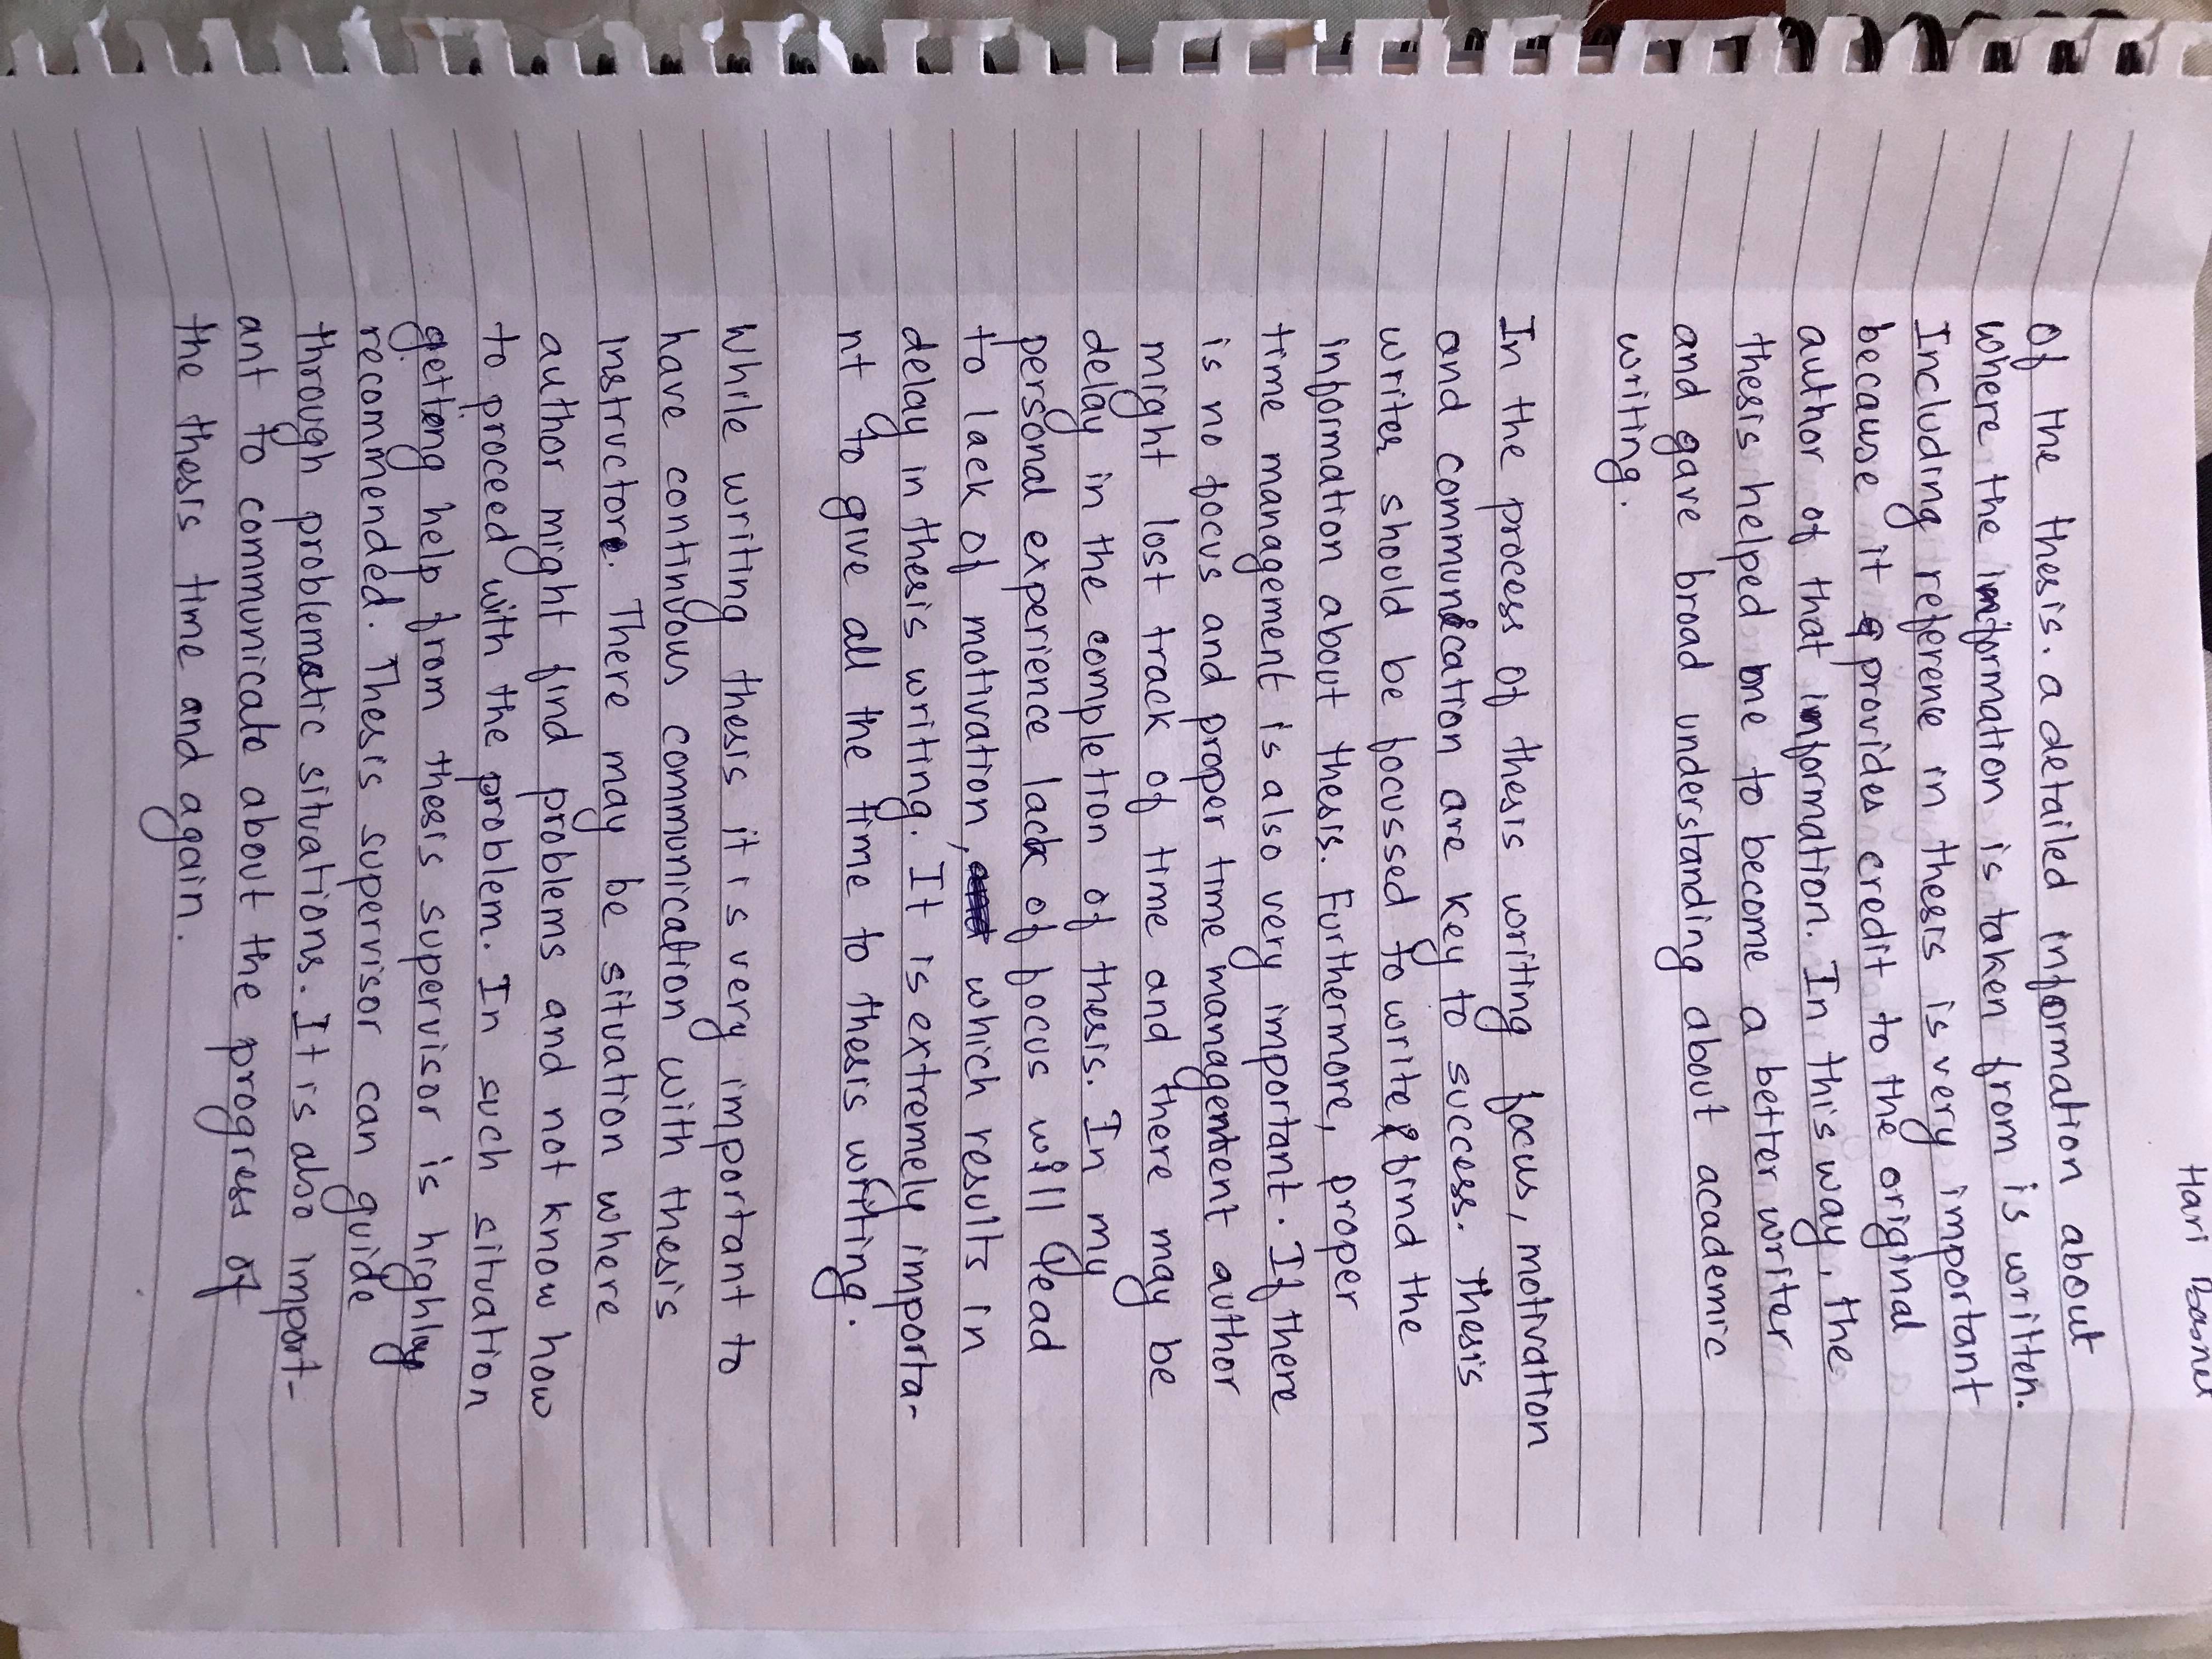 Hari Basnet
Of the thesis. a detailed information about
where the information is taken from is written.
Including reference in thesis is very important
because it provides credit to the original
author of that information. In this way, the
thesis helped one to become a better writer
and gave broad understanding about academic
writing.
In the process of thesis writing focus, motivation
and communication are key to success. Thesis
writer should be focussed to write & find the
information about thesis. Furthermore, proper
time management is also very important. If there
is no focus and proper time management author
might lost track of time and there may be
delay in the completion of thesis. In my
personal experience lack of focus will lead
to lack of motivation, which results in
delay in thesis writing. It is extremely importa-
nt to give all the time to thesis writing.
While writing thesis it is very important to
have continuous communication with thesis
instructor. There may be situation where
author might find problems and not know how
to proceed with the problem. In such situation
getting help from thesis supervisor is highly
recommended. Thesis supervisor can guide
through problematic situations. It is also import-
ant to communicate about the progress of
the thesis time and again.